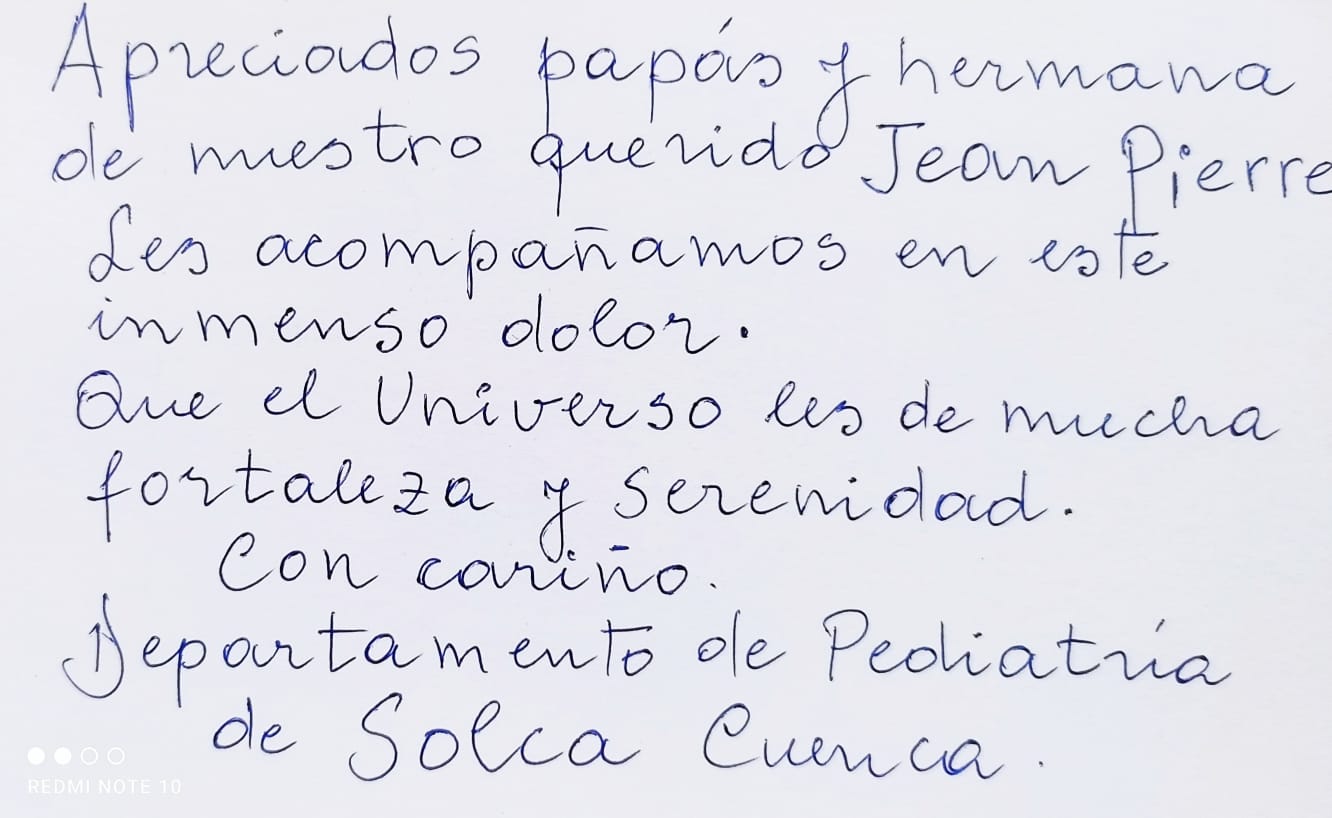 Apreciados papás y hermana
de nuestro querido Jean Pierre
Les acompañamos en este
inmenso dolor.
Que el Universo les de mucha
fortaleza y serenidad.
Con cariño.
Departamento de Pediatría
de Solca Cuenca.
REDMI NOTE 10